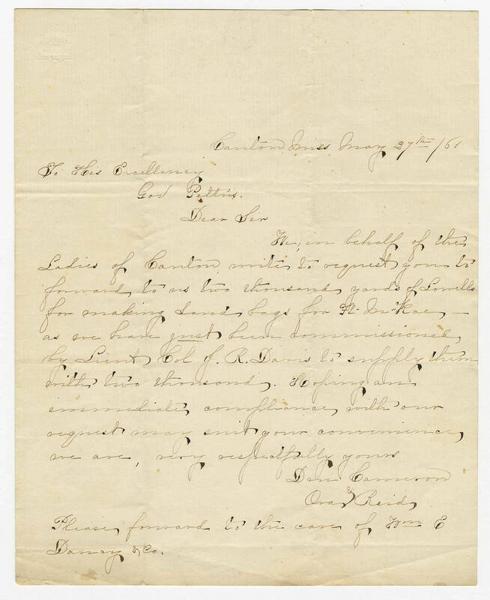 Canton Miss May 27th /61
To His Excellency
Gov Pettus.
Dear Sir
We, in behalf of the
Ladies of Canton write to request you to
forward to us two thousand yards of Lowells
for making sand bags for Ft. McRae, —
as we have just been commissioned
by Lieut Col J. R. Davis to supply them
with two thousand. Hoping an
immediate compliance with our
request may suit your convenience,
we are, very respectfully yours
Cameron
Ora Reid
Please forward to the care of Wm E
Dancy & Co.